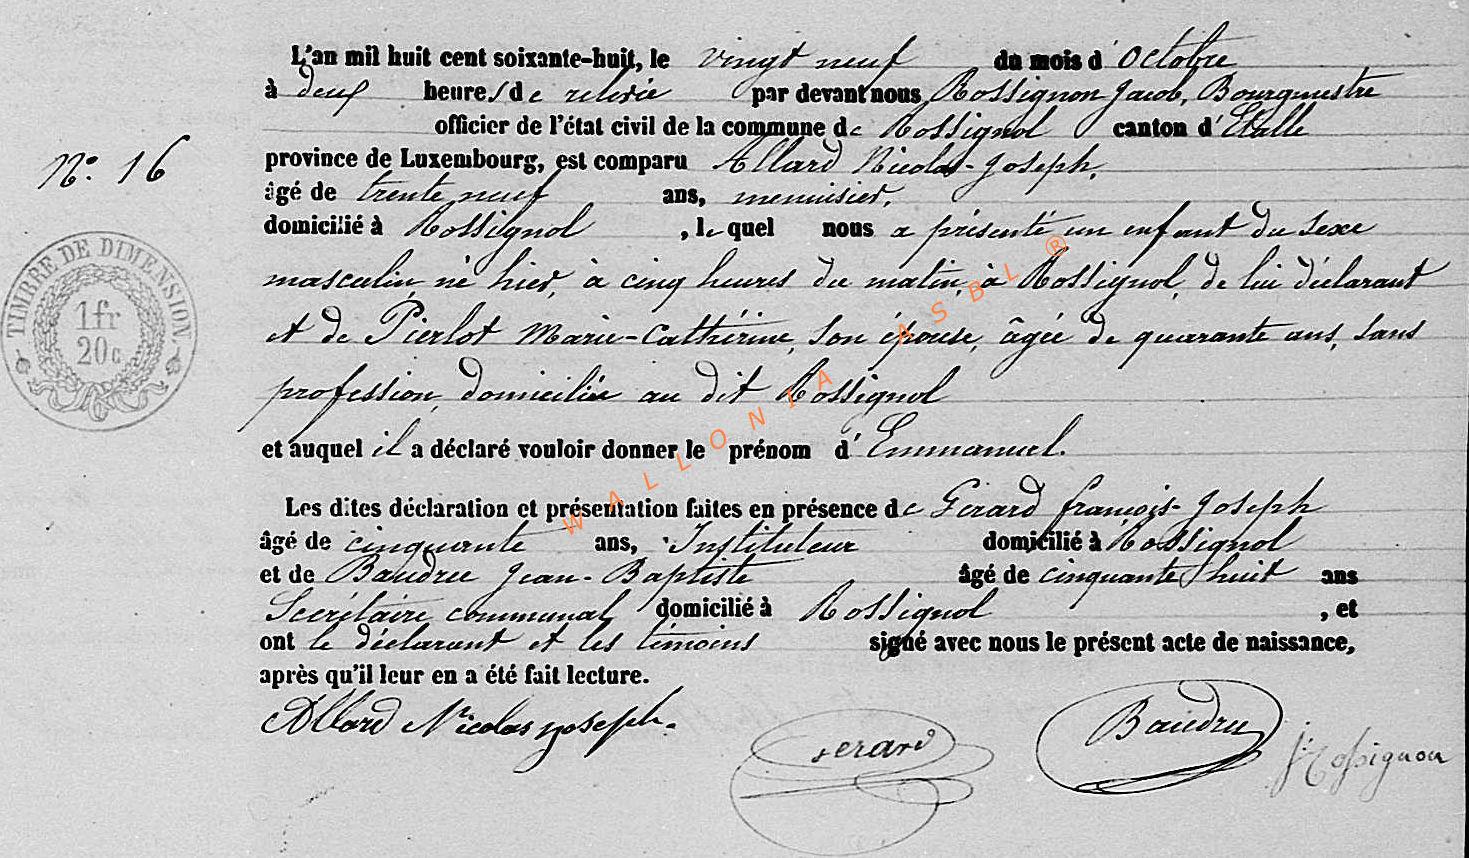 L'an mil huit cent soixante-huit, le vingt neuf du mois d'Octobre
à deux heures de relevée par devant nous Rossignon Jacob, Bourgmestre
officier de l'état civil de la commune de Rossignol canton d'Etalle
N.o 16
province de Luxembourg, est comparu Allard Nicolas-Joseph,
âgé de trente neuf ans, menuisier,
domicilié à Rossignol, lequel nous a présenté un enfant du sexe
masculin, né hier, à cinq heures du matin, à Rossignol, de lui déclarant
et de Pierlot Marie-Cathérine, son épouse, âgée de quarante ans, sans
profession, domiciliée au dit Rossignol
et auquel il a déclaré vouloir donner le prénom d'Emmanuel.
Les dites déclaration et présentation faites en présence de Gérard françois-Joseph
âgé de cinquante ans, Instituteur domicilié à Rossignol
et de Baudru Jean-Baptiste âgé de cinquante huit ans
Secrétaire communal domicilié à Rossignol, et
ont le déclarant et les témoins signé avec nous le présent acte de naissance,
après qu'il leur en a été fait lecture.
Allard Nicolas joseph.
Gerard
Baudru
J. Rossignon
TIMBRE DE DIMENSION
1fr
20c
WALLONIA ASBL ®